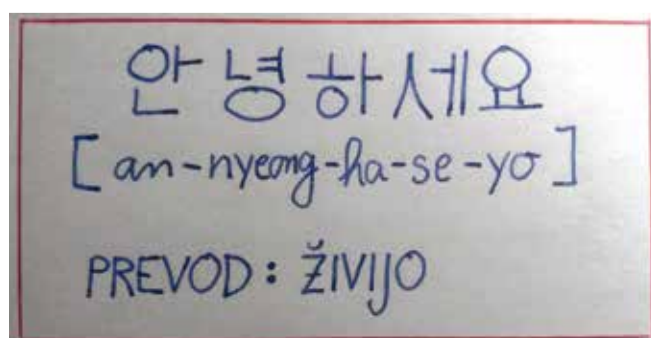 안녕하세요
[an-nyeong-ha-se-yo]
PREVOD: ŽIVIJO